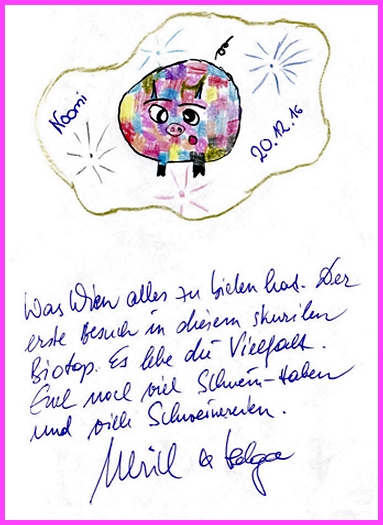 Noomi
20.12.16
Was Wien alles zu bieten hat. Der
erste Besuch in diesem skurilen
Biotop. Es lebe die Vielfalt.
Euch noch viel Schwein-Haben
und viele Schweinereien.
&